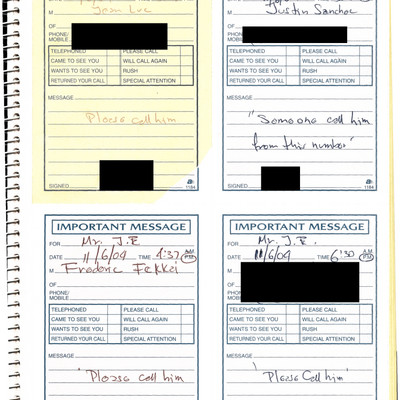 M Jean Luc
OF
PHONE/
MOBILE
TELEPHONED PLEASE CALL
CAME TO SEE YOU WILL CALL AGAIN
WANTS TO SEE YOU RUSH
RETURNED YOUR CALL SPECIAL ATTENTION
MESSAGE
Please call him
SIGNED 1184
M Justin Sanchoc
OF
PHONE/
MOBILE
TELEPHONED PLEASE CALL
CAME TO SEE YOU WILL CALL AGAIN
WANTS TO SEE YOU RUSH
RETURNED YOUR CALL SPECIAL ATTENTION
MESSAGE
"Someone call him
from this number"
SIGNED 1184
IMPORTANT MESSAGE
FOR Mr. J.E.
DATE 11/6/09 TIME 4:37 AM PM
M Frederic Fekkai
OF
PHONE/
MOBILE
TELEPHONED PLEASE CALL
CAME TO SEE YOU WILL CALL AGAIN
WANTS TO SEE YOU RUSH
RETURNED YOUR CALL SPECIAL ATTENTION
MESSAGE
"Please call him
IMPORTANT MESSAGE
FOR Mr. J.E.
DATE 11/6/09 TIME 6:30 AM PM
M
OF
PHONE/
MOBILE
TELEPHONED PLEASE CALL
CAME TO SEE YOU WILL CALL AGAIN
WANTS TO SEE YOU RUSH
RETURNED YOUR CALL SPECIAL ATTENTION
MESSAGE
"Please Call him"